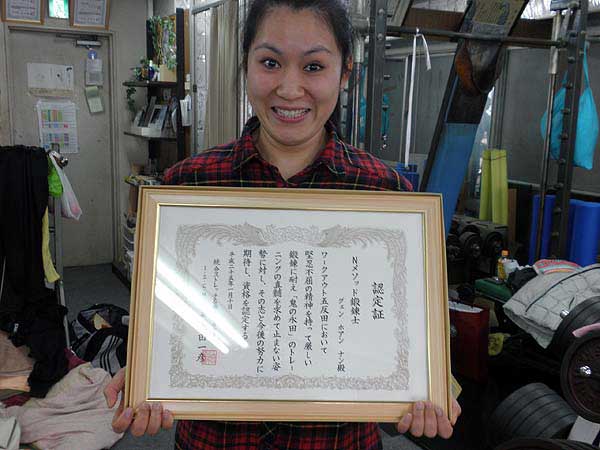 認定証
Nメソッド鍛錬士
グエン ホアン ナン殿
ワークアウト五反田において
堅忍不屈の精神を持って厳しい
鍛錬に耐え「鬼の永田」のトレー
ニングの真髄を求めて止まない姿
勢に対し、その志と今後の努力に
期待し、資格を認定する。
平成二十五年一月十日
統合ストレッチ
田一彦